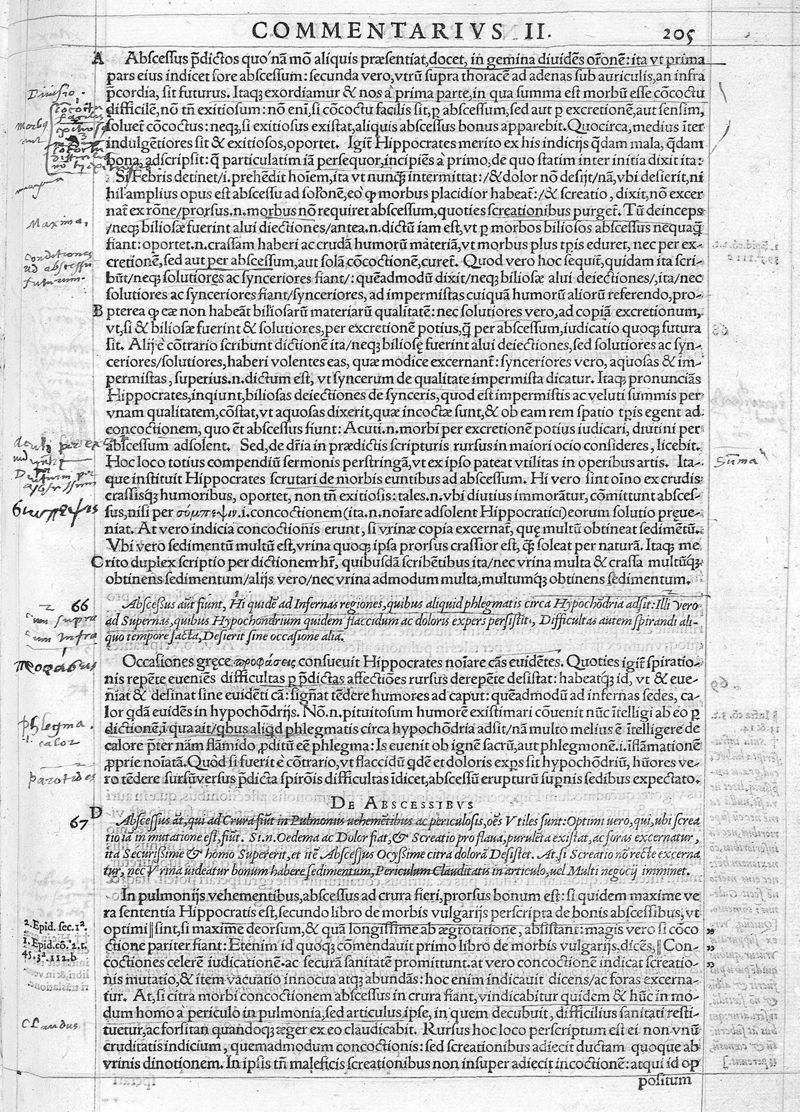 COMMENTARIVS II. 205
A Abscessus p̄dictos quo´nā mō aliquis præsentiat, docet, in gemina diuidēs orōne: ita vt prima
pars eius indicet fore abscessum: secunda vero, vtrū supra thoracē ad adenas sub auriculis, an infra
p̄cordia, sit futurus. Itaq; exordiamur & nos a´prima parte, in qua summa est morbū esse cōcoctu
difficilē, nō tn̄ exitiosum: nō eni, si cōcoctu facilis sit, p abscessum, sed aut p excretionē, aut sensim,
soluet´ cōcoctus: neq; si exitiosus existat, aliquis abscessus bonus apparebit. Quocirca, medius īter
indulgētiores sit & exitiosos, oportet. Igit´ Hippocrates merito ex his indicijs q̄dam mala, q̄dam
bona, adscripsit: q̄ particulatim iā persequor, incipiēs a´primo, de quo statim inter initia dixit ita:
Si Febris detinet/i. prehēdit hoīem, ita vt nunq̄ intermittat: /& dolor nō desijt/nā, vbi desierit, ni
hil amplius opus est abscessu ad solōnē, eo´ꝙ morbus placidior habeat´: /& screatio, dixit, nō excer
nat´ ex rōne/prorsus .n. morbus nō requiret abscessum, quoties screationibus purget´. Tū deinceps
/neq; biliosæ fuerint alui diectiones/antea .n. dictū iam est, vt p morbos biliosos abscessus nequaq̄
fiant: oportet .n. crassam haberi ac crudā humorū māteriā, vt morbus plus tp̄is eduret, nec per ex-
cretionē, sed aut per abscessum, aut solā cōcoctionē, curet´. Quod vero hoc sequit´, quidam ita scri-
būt/neq; solutiores ac synceriores fiant/: quēadmodū dixit/neq; biliosæ alui deiectiones/, ita/nec
solutiores ac synceriores fiant/synceriores, ad impermistas cuiuq̄ humorū aliorū referendo, pro-
B pterea ꝙ eæ non habeāt biliosarū materiarū qualitatē: nec solutiores vero, ad copiā excretionum,
vt, si & biliosæ fuerint & solutiores, per excretionē potius, q̄ per abscessum, iudicatio quoq; futura
sit. Alij e´ cōtrario scribunt dictionē ita/neq; biliosę fuerint alui deiectiones, sed solutiores ac syn-
ceriores/solutiores, haberi volentes eas, quæ modice excernant´: synceriores vero, aquosas & im-
permistas, superius .n. dictum est, vt syncerum de qualitate impermista dicatur. Itaq; pronunciās
Hippocrates, inqiunt, biliosas deiectiones de synceris, quod est impermistis ac veluti summis per
vnam qualitatem, cōstat, vt aquosas dixerit, quæ incoctæ sunt, & ob eam rem spatio tp̄is egent ad
concoctionem, quo ēt abscessus fiunt: Acuti .n. morbi per excretionē potius iudicari, diutini per
abscessum adsolent. Sed, de dr̄ia in prædictis scripturis rursus in maiori ocio consideres, licebit.
Hoc loco totius compendiū sermonis perstringā, vt ex ipso pateat vtilitas in operibus artis. Ita-
que instituit Hippocrates scrutari de morbis euntibus ad abscessum. Hi vero sint oīno ex crudis
crassisq; humoribus, oportet, non tn̄ exitiosis: tales .n. vbi diutius immorāt´, cōmittunt absces-
sus, nisi per σύμπεψιν .i. concoctionem (ita .n. noīare adsolent Hippocratici) eorum solutio p̄ueniat.
At vero indicia concoctionis erunt, si vrinæ copia excernat´, quę multū obtineat sedimētū.
Vbi vero sedimentū multū est, vrina quoq; ipsa prorsus crassior est, q̄ soleat per naturā. Itaq; me
C rito duplex scriptio per dictionem hr̄, quibusdā scribētibus ita/nec vrina multa & crassa multūq;
obtinens sedimentum/alijs vero/nec vrina admodum multa, multumq; obtinens sedimentum.
66 Abscessus aūt fiunt, Hi quidē ad Infernas regiones, quibus aliquid phlegmatis circa Hypochōdria adsit: Illi vero
ad Supernas, quibus Hypochondrium quidem flaccidum ac doloris expers persistit, Difficultas autem spirandi ali-
quo tempore facta, Desierit sine occasione alia.
Occasiones gręce προφάσεις consueuit Hippocrates noīare cās euidētes. Quoties igit´ spiratio-
nis repēte eueniēs difficultas p p̄dictas affectiōes rursus derepēte desistat: habeatq; id, vt & eue-
niat & desinat sine euidēti cā: signat tēdere humores ad caput: quēadmodū ad infernas sedes, ca-
lor q̄dā euidēs in hypochōdrijs. Nō .n. pituitosum humorē existimari cōuenit nūc ītelligi ab eo p
dictionē, i qua ait/qbus aliqd phlegmatis circa hypochōdria adsit/nā multo melius ē ītelligere de
calore p̄ter nām flāmido, pditū eē phlegma: Is euenit ob ignē sacrū, aut phlegmonē .i. īflāmationē
pprie noīatā. Quod si fuerit e´ cōtrario, vt flaccidū qdē et doloris exps sit hypochōdriū, hūores ve-
ro tēdere sursūversus p̄dicta spirōis difficultas īdicet, abscessū erupturū supnis sedibus expectato.
DE ABSCESSIBVS
D
67 Abscessus āt, qui ad Crura fiūt in Pulmonijs uehemētibus ac periculosis, oēs Vtiles sunt: Optimi uero, qui, ubi screa
tio iā in mutatione est, fiūt. Si .n. Oedema ac Dolor fiat, & Screatio pro flaua, purulēta existat, ac foras excernatur,
ita Securissime & homo Supererit, et itē Abscessus Ocyssime citra dolorā Desistet. At, si Screatio nō recte excerna
tur, nec Vrina uideatur bonum habere sedimentum, Periculum Clauditatis in articulo, uel Multi negocij imminet.
In pulmonijs vehementibus, abscessus ad crura fieri, prorsus bonum est: si quidem maxime ve
ra sententia Hippocratis est, secundo libro de morbis vulgarijs perscripta de bonis abscessibus, vt
optimi ‖ sint, si maxime deorsus, & quā longissime ab ægrotatione, absistant: magis vero si cōco
ctione pariter fiant: Etenim id quoq; cōmendauit primo libro de morbis vulgarijs, dicēs, ‖ Con-
coctiones celerē iudicationē ac securā sanitatē promittunt. at vero concoctionē indicat screatio-
nis mutatio, & item vacuatio innocua atq; abundās: hoc enim indicauit dicens/ac foras excerna-
tur. At, si citra morbi concoctionem abscessus in crura fiant, vindicabitur quidem & hūc in mo-
dum homo a´ periculo in pulmonia, sed articulus ipse, in quem decubuit, difficilius sanitati resti-
tuetur, ac forsitan quandoq; æger ex eo claudicabit. Rursus hoc loco perscriptum est ei non vnū
cruditatis indicium, quemadmodum concoctionis: sed screationibus adiecit ductam quoque ab
vrinis dinotionem. In ipsis tn̄ maleficis screationibus non insuper adiecit incoctionē: atqui id op
positum
Diuisio.
Maxima.
conditiones
ad abscessū
futurum.
Sūma
phlegma.
.i. calor
parotides
2. Epid. sec. 1ª.
1. Epid. cō. 2. t.
45. jª. 112. b
Claudus